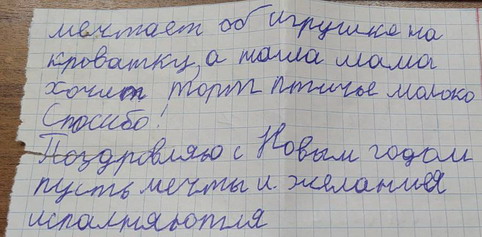 мечтает об игрушке на
кроватку, а наша мама
хочит торт птичье молоко
Спосибо!
Поздровляю с Новым годом
пусть мечты и желания
исполняютля